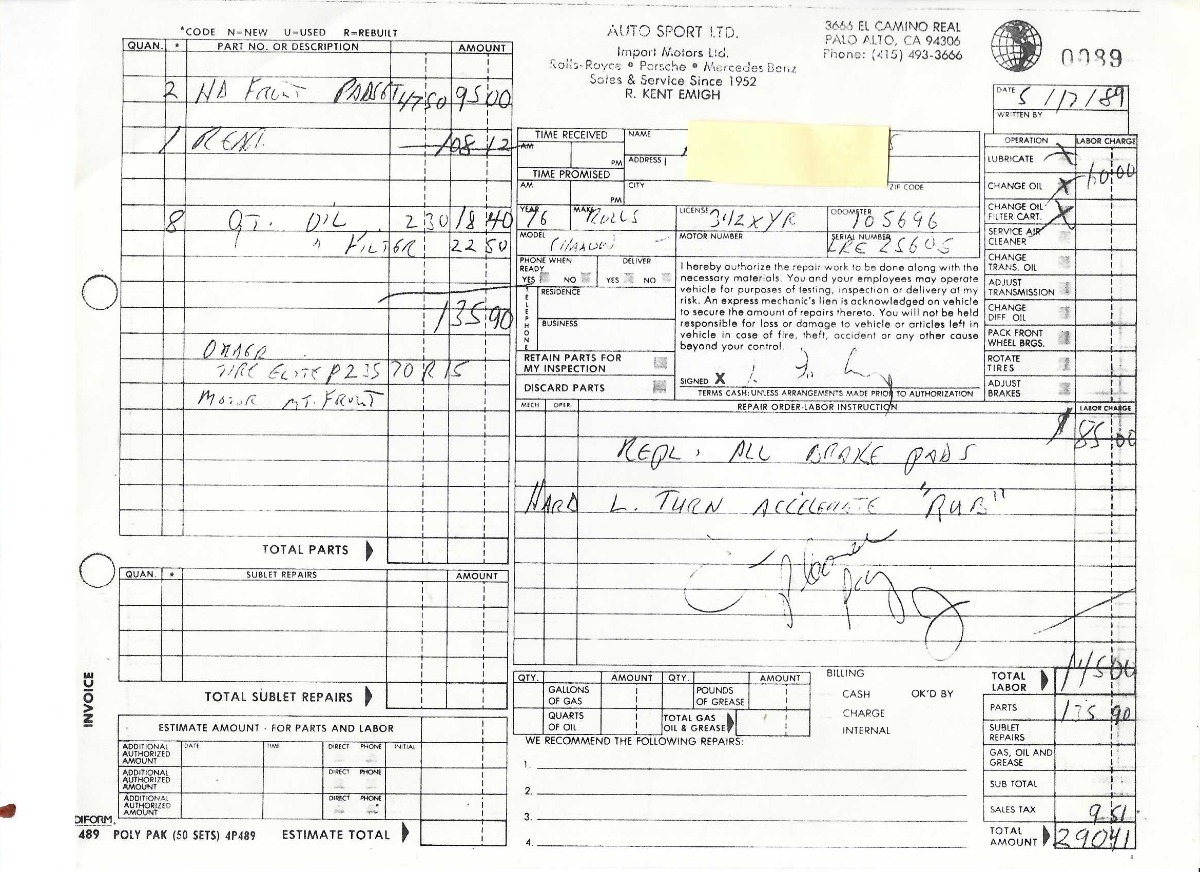 *CODE N=NEW U=USED R=REBUILT
QUAN. * PART NO. OR DESCRIPTION AMOUNT
2 HD FRONT PADS 4750 9500
1 RENT 108 12
8 QT. OIL 2 30 18 40
" FILTER 22 50
135 90
ORDER
TIRE ELITE P235 70 R 15
MOTOR MT. FRONT
TOTAL PARTS
QUAN. * SUBLET REPAIRS AMOUNT
TOTAL SUBLET REPAIRS
ESTIMATE AMOUNT - FOR PARTS AND LABOR
ADDITIONAL AUTHORIZED AMOUNT DATE TIME DIRECT PHONE INITIAL
ADDITIONAL AUTHORIZED AMOUNT DIRECT PHONE
ADDITIONAL AUTHORIZED AMOUNT DIRECT PHONE
ESTIMATE TOTAL
INVOICE
DIFORM.
489 POLY PAK (50 SETS) 4P489
AUTO SPORT LTD.
Import Motors Ltd.
Rolls-Royce • Porsche • Mercedes Benz
Sales & Service Since 1952
R. KENT EMIGH
3666 EL CAMINO REAL
PALO ALTO, CA 94306
Phone: (415) 493-3666
0089
DATE 5/17/89
WRITTEN BY
TIME RECEIVED
AM
PM
TIME PROMISED
AM
PM
NAME
ADDRESS
CITY ZIP CODE
YEAR 76 MAKE ROLLS LICENSE 312XYR ODOMETER 105696
MODEL MOTOR NUMBER SERIAL NUMBER LRE 25605
PHONE WHEN READY DELIVER
YES NO YES NO
TELEPHONE
RESIDENCE
BUSINESS
RETAIN PARTS FOR MY INSPECTION
DISCARD PARTS
I hereby authorize the repair work to be done along with the
necessary materials. You and your employees may operate
vehicle for purposes of testing, inspection or delivery at my
risk. An express mechanic's lien is acknowledged on vehicle
to secure the amount of repairs thereto. You will not be held
responsible for loss or damage to vehicle or articles left in
vehicle in case of fire, theft, accident or any other cause
beyond your control.
SIGNED X
TERMS CASH: UNLESS ARRANGEMENTS MADE PRIOR TO AUTHORIZATION
OPERATION LABOR CHARGE
LUBRICATE X
CHANGE OIL X 60 00
CHANGE OIL FILTER CART. X
SERVICE AIR CLEANER
CHANGE TRANS. OIL
ADJUST TRANSMISSION
CHANGE DIFF. OIL
PACK FRONT WHEEL BRGS.
ROTATE TIRES
ADJUST BRAKES
MECH OPER. REPAIR ORDER-LABOR INSTRUCTION LABOR CHARGE
REPL. ALL BRAKE PADS $ 85 00
HARD L. TURN ACCELERATE "RUB"
QTY. AMOUNT QTY. AMOUNT
GALLONS OF GAS POUNDS OF GREASE
QUARTS OF OIL TOTAL GAS OIL & GREASE
BILLING
CASH OK'D BY
CHARGE
INTERNAL
WE RECOMMEND THE FOLLOWING REPAIRS:
1.
2.
3.
4.
TOTAL LABOR 145 00
PARTS 135 90
SUBLET REPAIRS
GAS, OIL AND GREASE
SUB TOTAL
SALES TAX 9 51
TOTAL AMOUNT 290 41